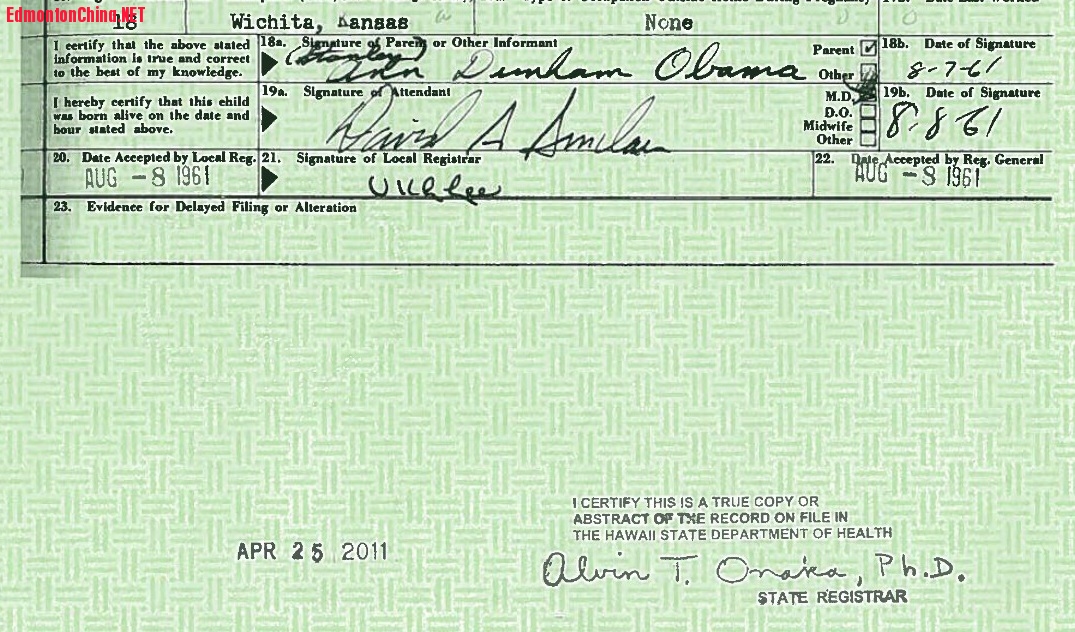 EdmontonChina.NET
18 Wichita, Kansas None
18a. Signature of Parent or Other Informant
I certify that the above stated
information is true and correct
to the best of my knowledge.
(Stanley)
Ann Dunham Obama
Parent
Other
18b. Date of Signature
8-7-61
19a. Signature of Attendant
I hereby certify that this child
was born alive on the date and
hour stated above.
David A Sinclair
M.D.
D.O.
Midwife
Other
19b. Date of Signature
8-8-61
20. Date Accepted by Local Reg.
AUG -8 1961
21. Signature of Local Registrar
U K L Lee
22. Date Accepted by Reg. General
AUG -8 1961
23. Evidence for Delayed Filing or Alteration
APR 25 2011
I CERTIFY THIS IS A TRUE COPY OR
ABSTRACT OF TXE RECORD ON FILE IN
THE HAWAII STATE DEPARTMENT OF HEALTH
Alvin T. Onaka, Ph.D.
STATE REGISTRAR